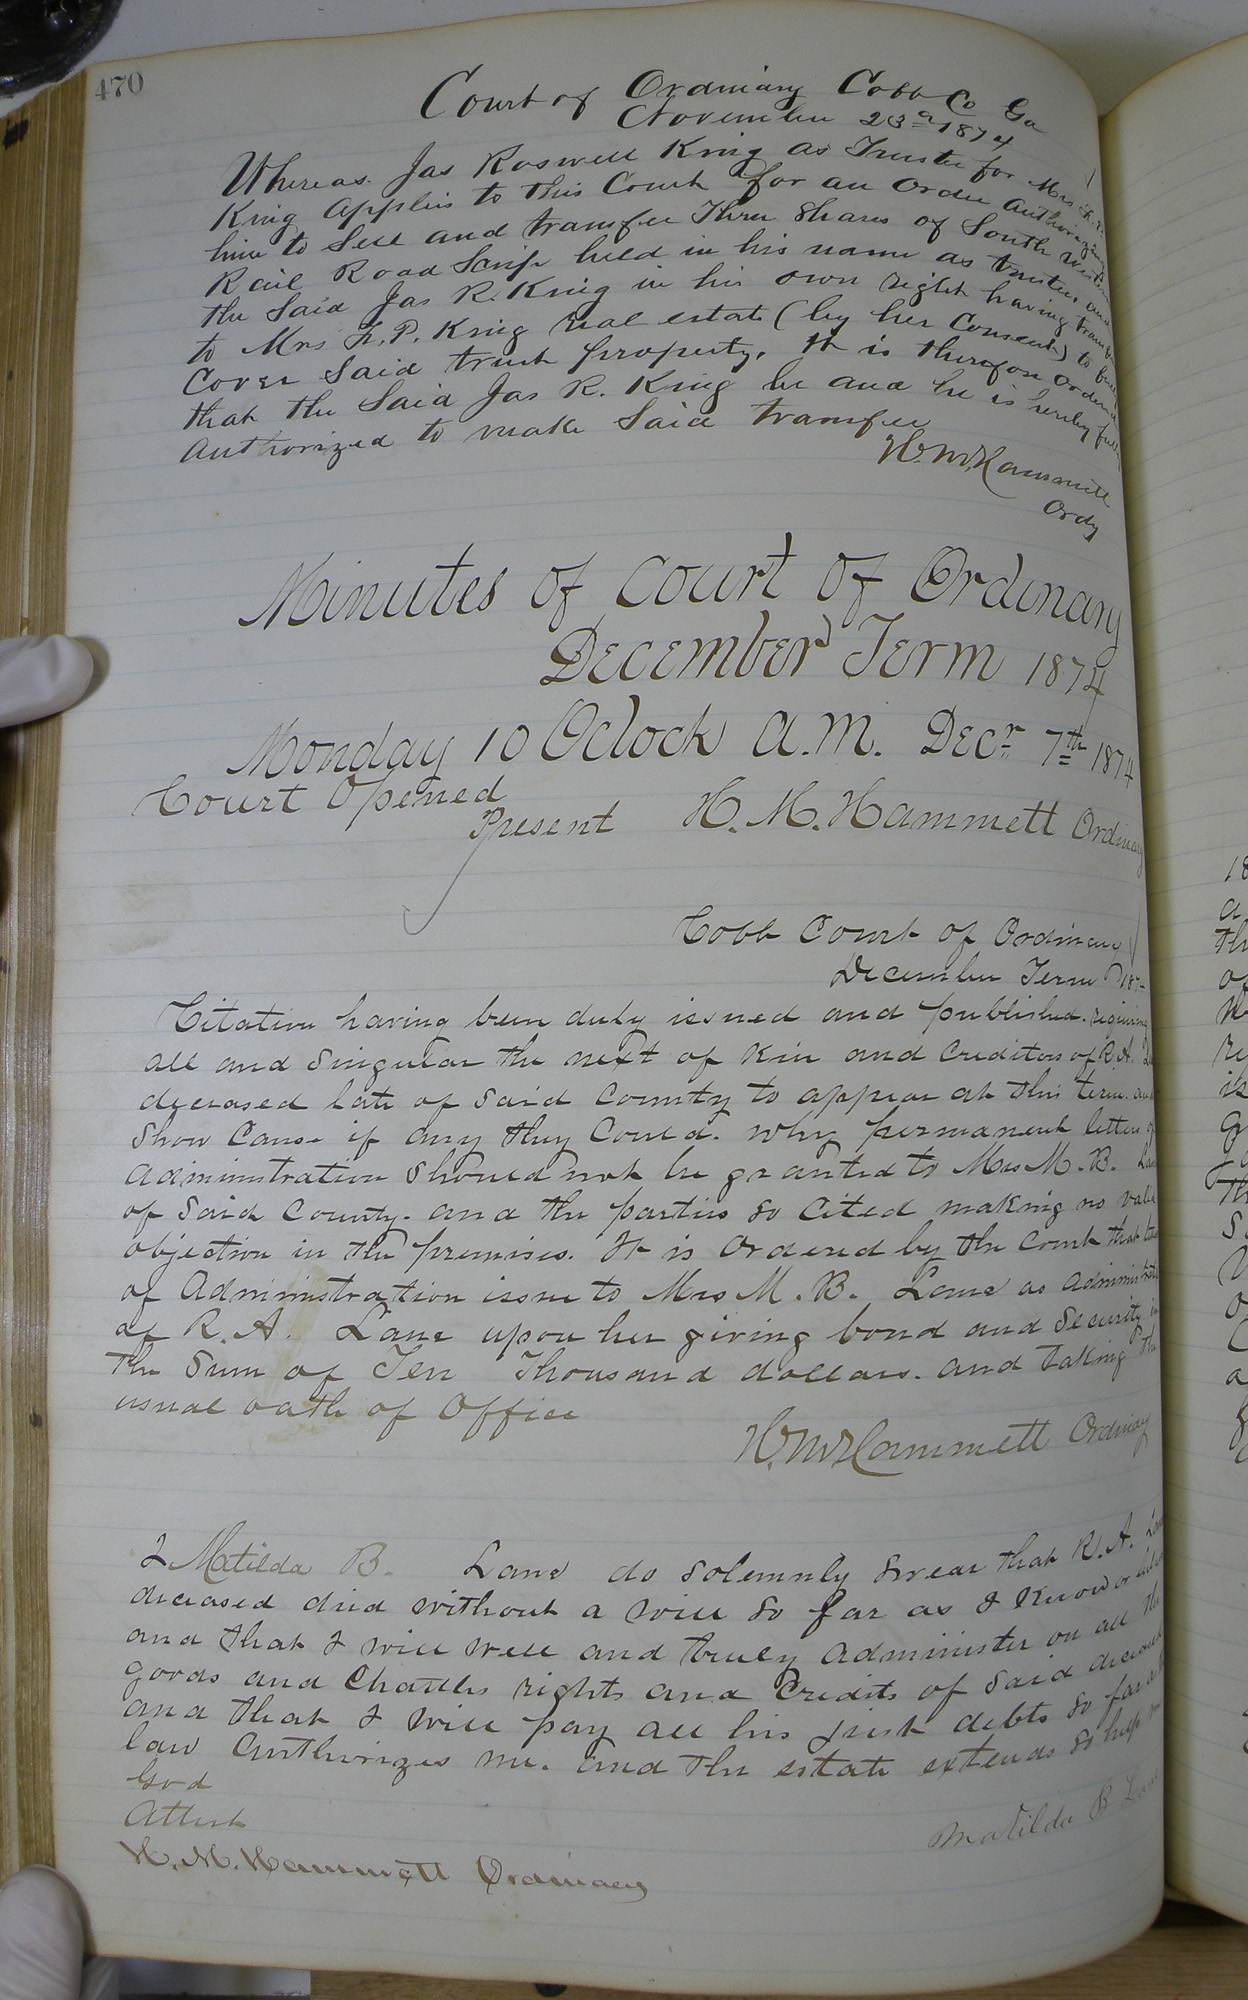 470
Court of Ordinary Cobb Co Ga
November 23d 1874
Whereas Jas Roswell King as Trustee for Mrs F. P.
King applies to this Court for an order authorizing
him to Sell and transfer Three Shares of South Western
Rail Road Scrip held in his name as trustee and
the Said Jas R. King in his own right having
to Mrs F. P. King real estate (by her Consent) to
Cover Said trust property. It is therefore ordered
that the Said Jas R. King be and he is hereby fully
Authorized to make Said transfer
H. M. Hammett
Ordy
Minutes of Court of Ordinary
December Term 1874
Monday 10 Oclock A.M. Decr 7th 1874
Court Opened
Present H. M. Hammett Ordinary
Cobb Court of Ordinary
December Term 1874
Citation having been duly issued and published. requiring
all and Singular the next of Kin and Creditors of R. A. Lane
deceased late of Said County to appear at this term. and
Show Cause if any they Could. why permanent letters of
administration Should not be granted to Mrs M. B. Lane
of Said County. and the parties so Cited making no valid
objection in the premises. It is Ordered by the Court that letters
of Administration issue to Mrs M. B. Lane as Administratrix
of R. A. Lane upon her giving bond and Security in
the Sum of Ten Thousand dollars. and taking the
usual oath of Office
H. M. Hammett Ordinary
I Matilda B. Lane do solemnly Swear that R. A. Lane
deceased died without a will so far as I Know or believe
and that I will well and truly administer on all the
goods and Chattles rights and Credits of Said deceased
and that I will pay all his just debts so far as
law Authorizes me. and the estate extends So help me
God
Attest
Matilda B Lane
H. M. Hammett Ordinary